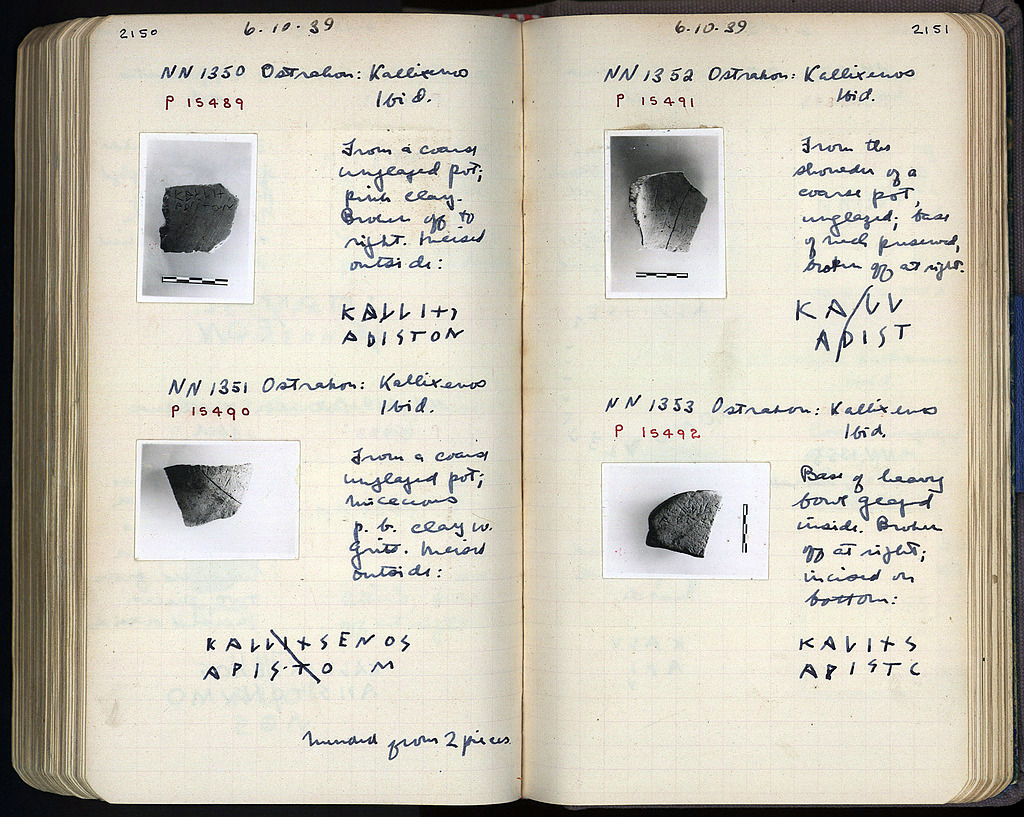 2150
6.10.39
NN 1350 Ostrakon: Kallixenos
P 15489
Ibid.
From a coarse
unglazed pot;
pink clay.
Broken off to
right. Incised
outside:
KALLIX
ARISTON
NN 1351 Ostrakon: Kallixenos
P 15490
Ibid.
From a coarse
unglazed pot;
micaceous
p. b. clay w.
grits. Incised
outside:
KALLIXSENOS
ARISTO M
Mended from 2 pieces.
6.10.39
2151
NN 1352 Ostrakon: Kallixenos
P 15491
Ibid.
From the
shoulder of a
coarse pot,
unglazed; base
of neck preserved,
broken off at right.
KALL
ARIST
NN 1353 Ostrakon: Kallixenos
P 15492
Ibid.
Base of heavy
bowl glazed
inside. Broken
off at right;
incised on
bottom:
KALIXS
ARISTC